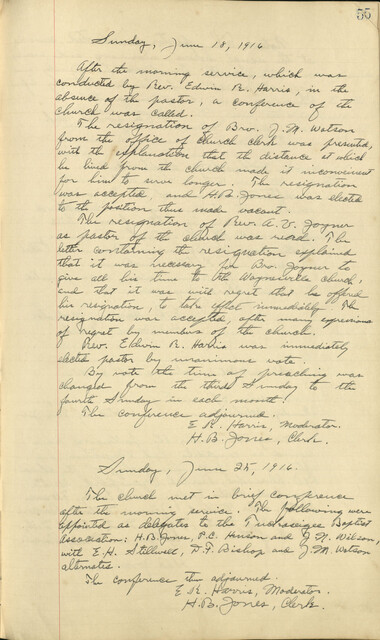 55
Sunday, June 18, 1916
After the morning service, which was
conducted by Rev. Edwin R. Harris, in the
absence of the pastor, a conference of the
church was called.
The resignation of Bro. J. M. Watson
from the office of church clerk was presented,
with the explanation that the distance at which
he lived from the church made it inconvenient
for him to serve longer. The resignation
was accepted, and H. B. Jones was elected
to the position thus made vacant.
The resignation of Rev. A. V. Joyner
as pastor of the church was read. The
letter containing the resignation explained
that it was necessary for Bro. Joyner to
give all his time to the Waynesville church,
and that it was with regret that he offered
his resignation, to take effect immediately. The
resignation was accepted, after many expressions
of regret by members of the church.
Rev. Edwin R. Harris was immediately
elected pastor by unanimous vote.
By vote the time of preaching was
changed from the third Sunday to the
fourth Sunday in each month.
The conference adjourned.
E. R. Harris, Moderator.
H. B. Jones, Clerk.
Sunday, June 25, 1916.
The church met in brief conference
after the morning service. The following were
appointed as delegates to the Tuckaseigee Baptist
Association: H. B. Jones, P. C. Henson and J. N. Wilson,
with E. H. Stillwell, D. F. Bishop and J. M. Watson
alternates.
The conference then adjourned.
E. R. Harris, Moderator.
H. B. Jones, Clerk.